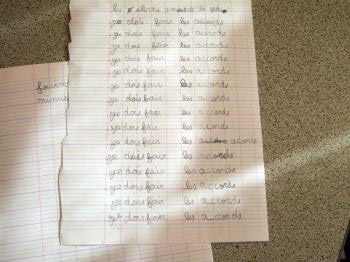 les
je dois fair les accords
je dois fair les accords
je dois fair les accords
je dois fair les accords
je dois fair les accords
je dois fair les accords
je dois fair les accords
je dois fair les accords
je dois fair les accords
je dois fair les accords
je dois fair les accords
je dois fair les accords
je dois fair les accords
je dois fair les accords
je dois fair les accords